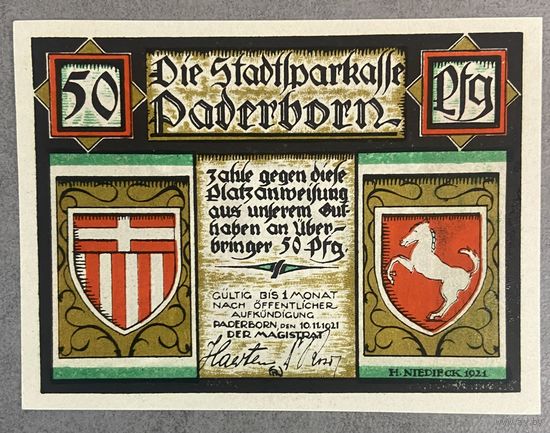 50
Die Stadtsparkasse
Paderborn
Pfg
zahle gegen diese
Platzanweisung
aus unserem Gut-
haben an Über-
bringer 50 Pfg
GÜLTIG BIS 1 MONAT
NACH ÖFFENTLICHER
AUFKÜNDIGUNG
PADERBORN, DEN 10.11.1921
DER MAGISTRAT
H. NIEDIECK 1921